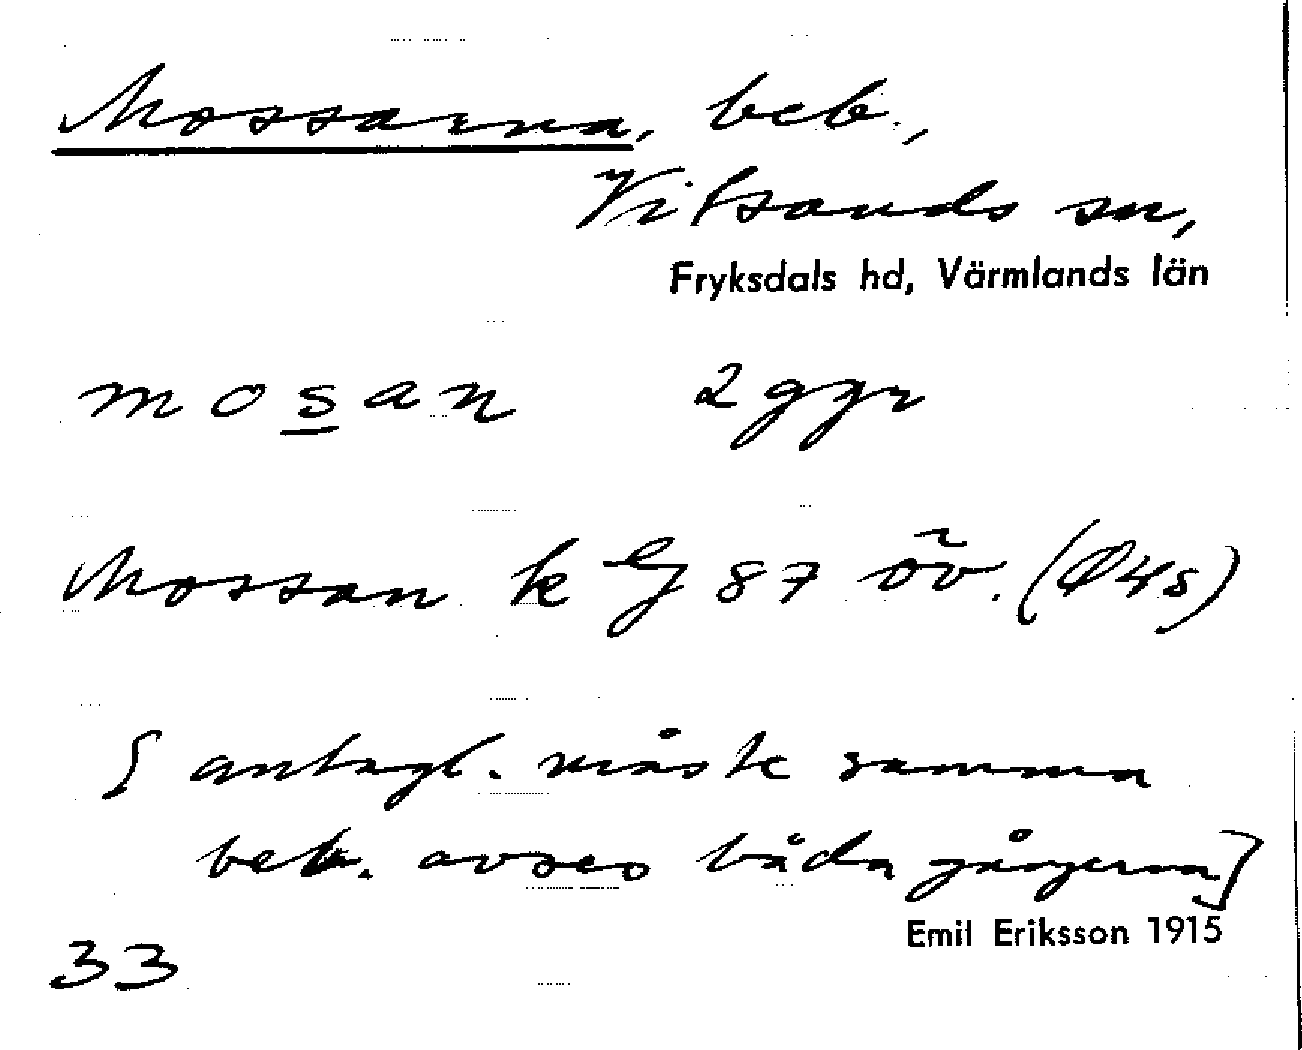 Mossarna, beb.,
Vitsands sn,
Fryksdals hd, Värmlands län
mosan 2 ggr
Mossan k 87 öv. (Ø4s)
[antagl. måste samma
beb. avses båda gångerna]
Emil Eriksson 1915
33